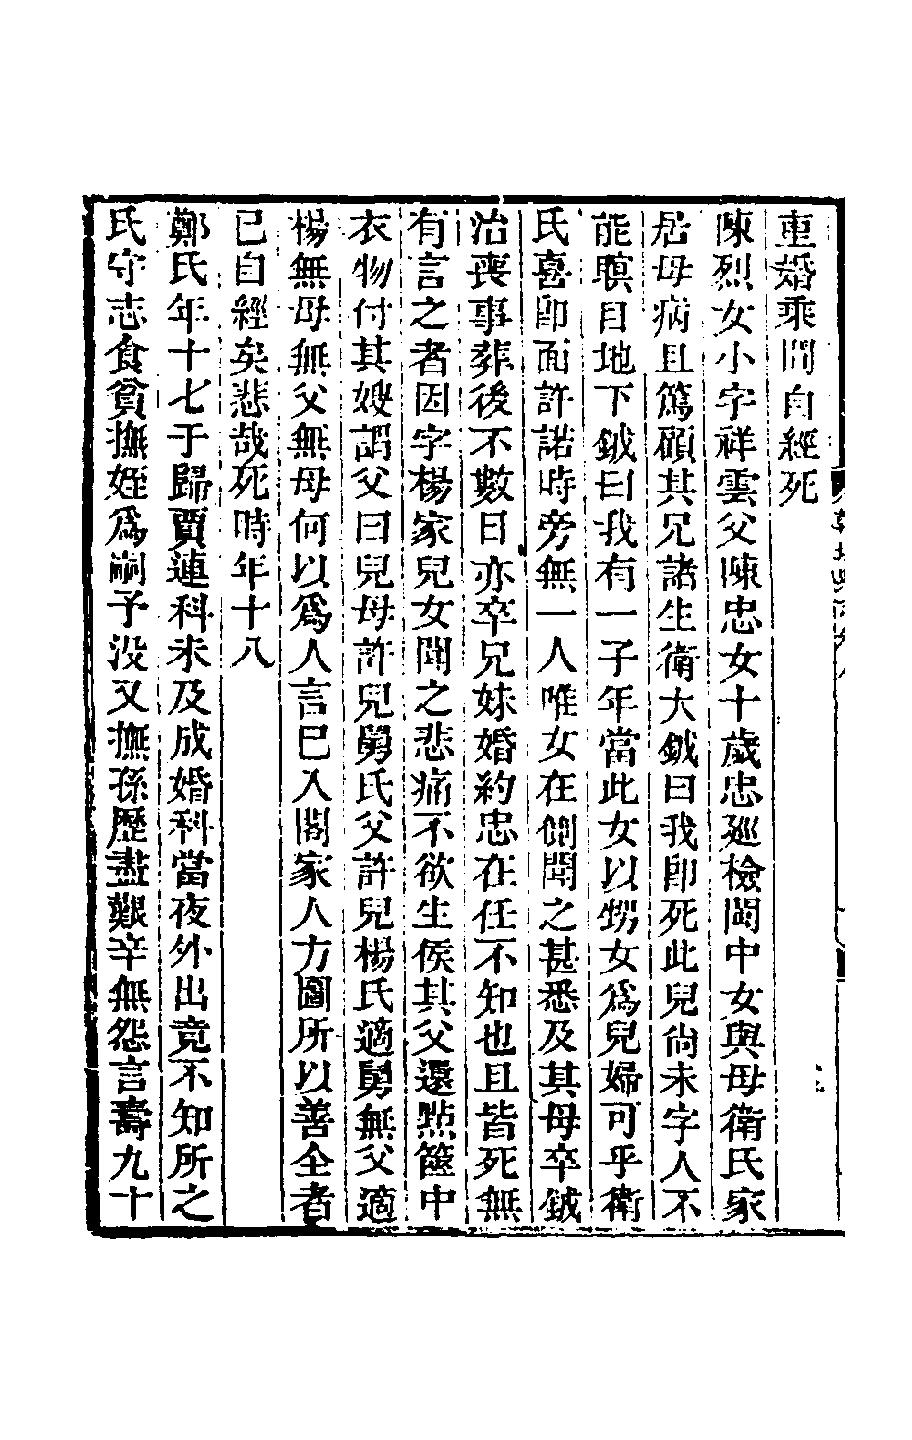 重婚乘間自經死
陳烈女小字祥雲父陳忠女十歲忠廵檢閩中女與母衛氏家
居母病且篤顧其兄諸生衛大鉞曰我卽死此兒尙未字人不
能瞑目地下鉞曰我有一子年當此女以甥女爲兒婦可乎衛
氏喜卽面許諾時旁無一人唯女在側聞之甚悉及其母卒鉞
治喪事葬後不數日亦卒兄妹婚約忠在任不知也且皆死無
有言之者因字楊家兒女聞之悲痛不欲生俟其父還㸃篋中
衣物付其嫂謂父曰兒母許兒舅氏父許兒楊氏適舅無父適
楊無母無父無母何以爲人言已入閤家人方圖所以善全者
已自經矣悲哉死時年十八
鄭氏年十七于歸賈連科未及成婚科當夜外出竟不知所之
氏守志食貧撫姪爲嗣子没又撫孫歷盡艱辛無怨言壽九十